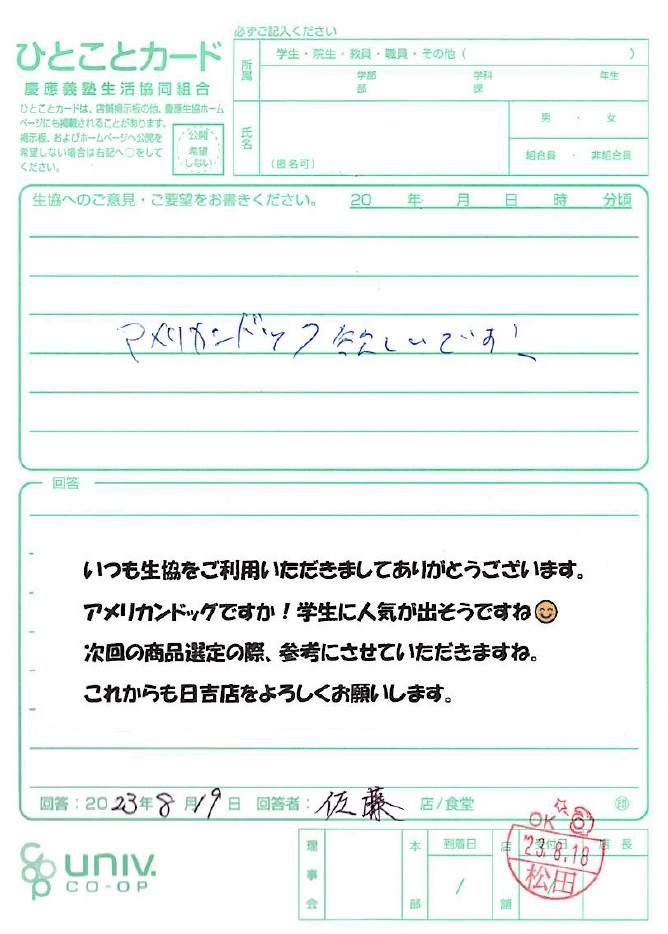 必ずご記入ください
ひとことカード
慶應義塾生活協同組合
ひとことカードは、店舗掲示板の他、慶應生協ホーム
ページにも掲載されることがあります。
掲示板、およびホームページへ公開を
希望しない場合は右記へ○をして
ください。
公開
希望
しない
所属
学生・院生・教員・職員・その他（ ）
学部 学科 年生
部 課
氏名
（匿名可）
男 ・ 女
組合員 ・ 非組合員
生協へのご意見・ご要望をお書きください。 20 年 月 日 時 分頃
アメリカンドック欲しいです!
回答
いつも生協をご利用いただきましてありがとうございます。
アメリカンドッグですか！学生に人気が出そうですね😊
次回の商品選定の際、参考にさせていただきますね。
これからも日吉店をよろしくお願いします。
回答：2023年8月19日 回答者：佐藤 店/食堂 印
OK
univ.
CO-OP
理事会
本部
到着日
/
店舗
受付日
店長
'23.8.18
松田